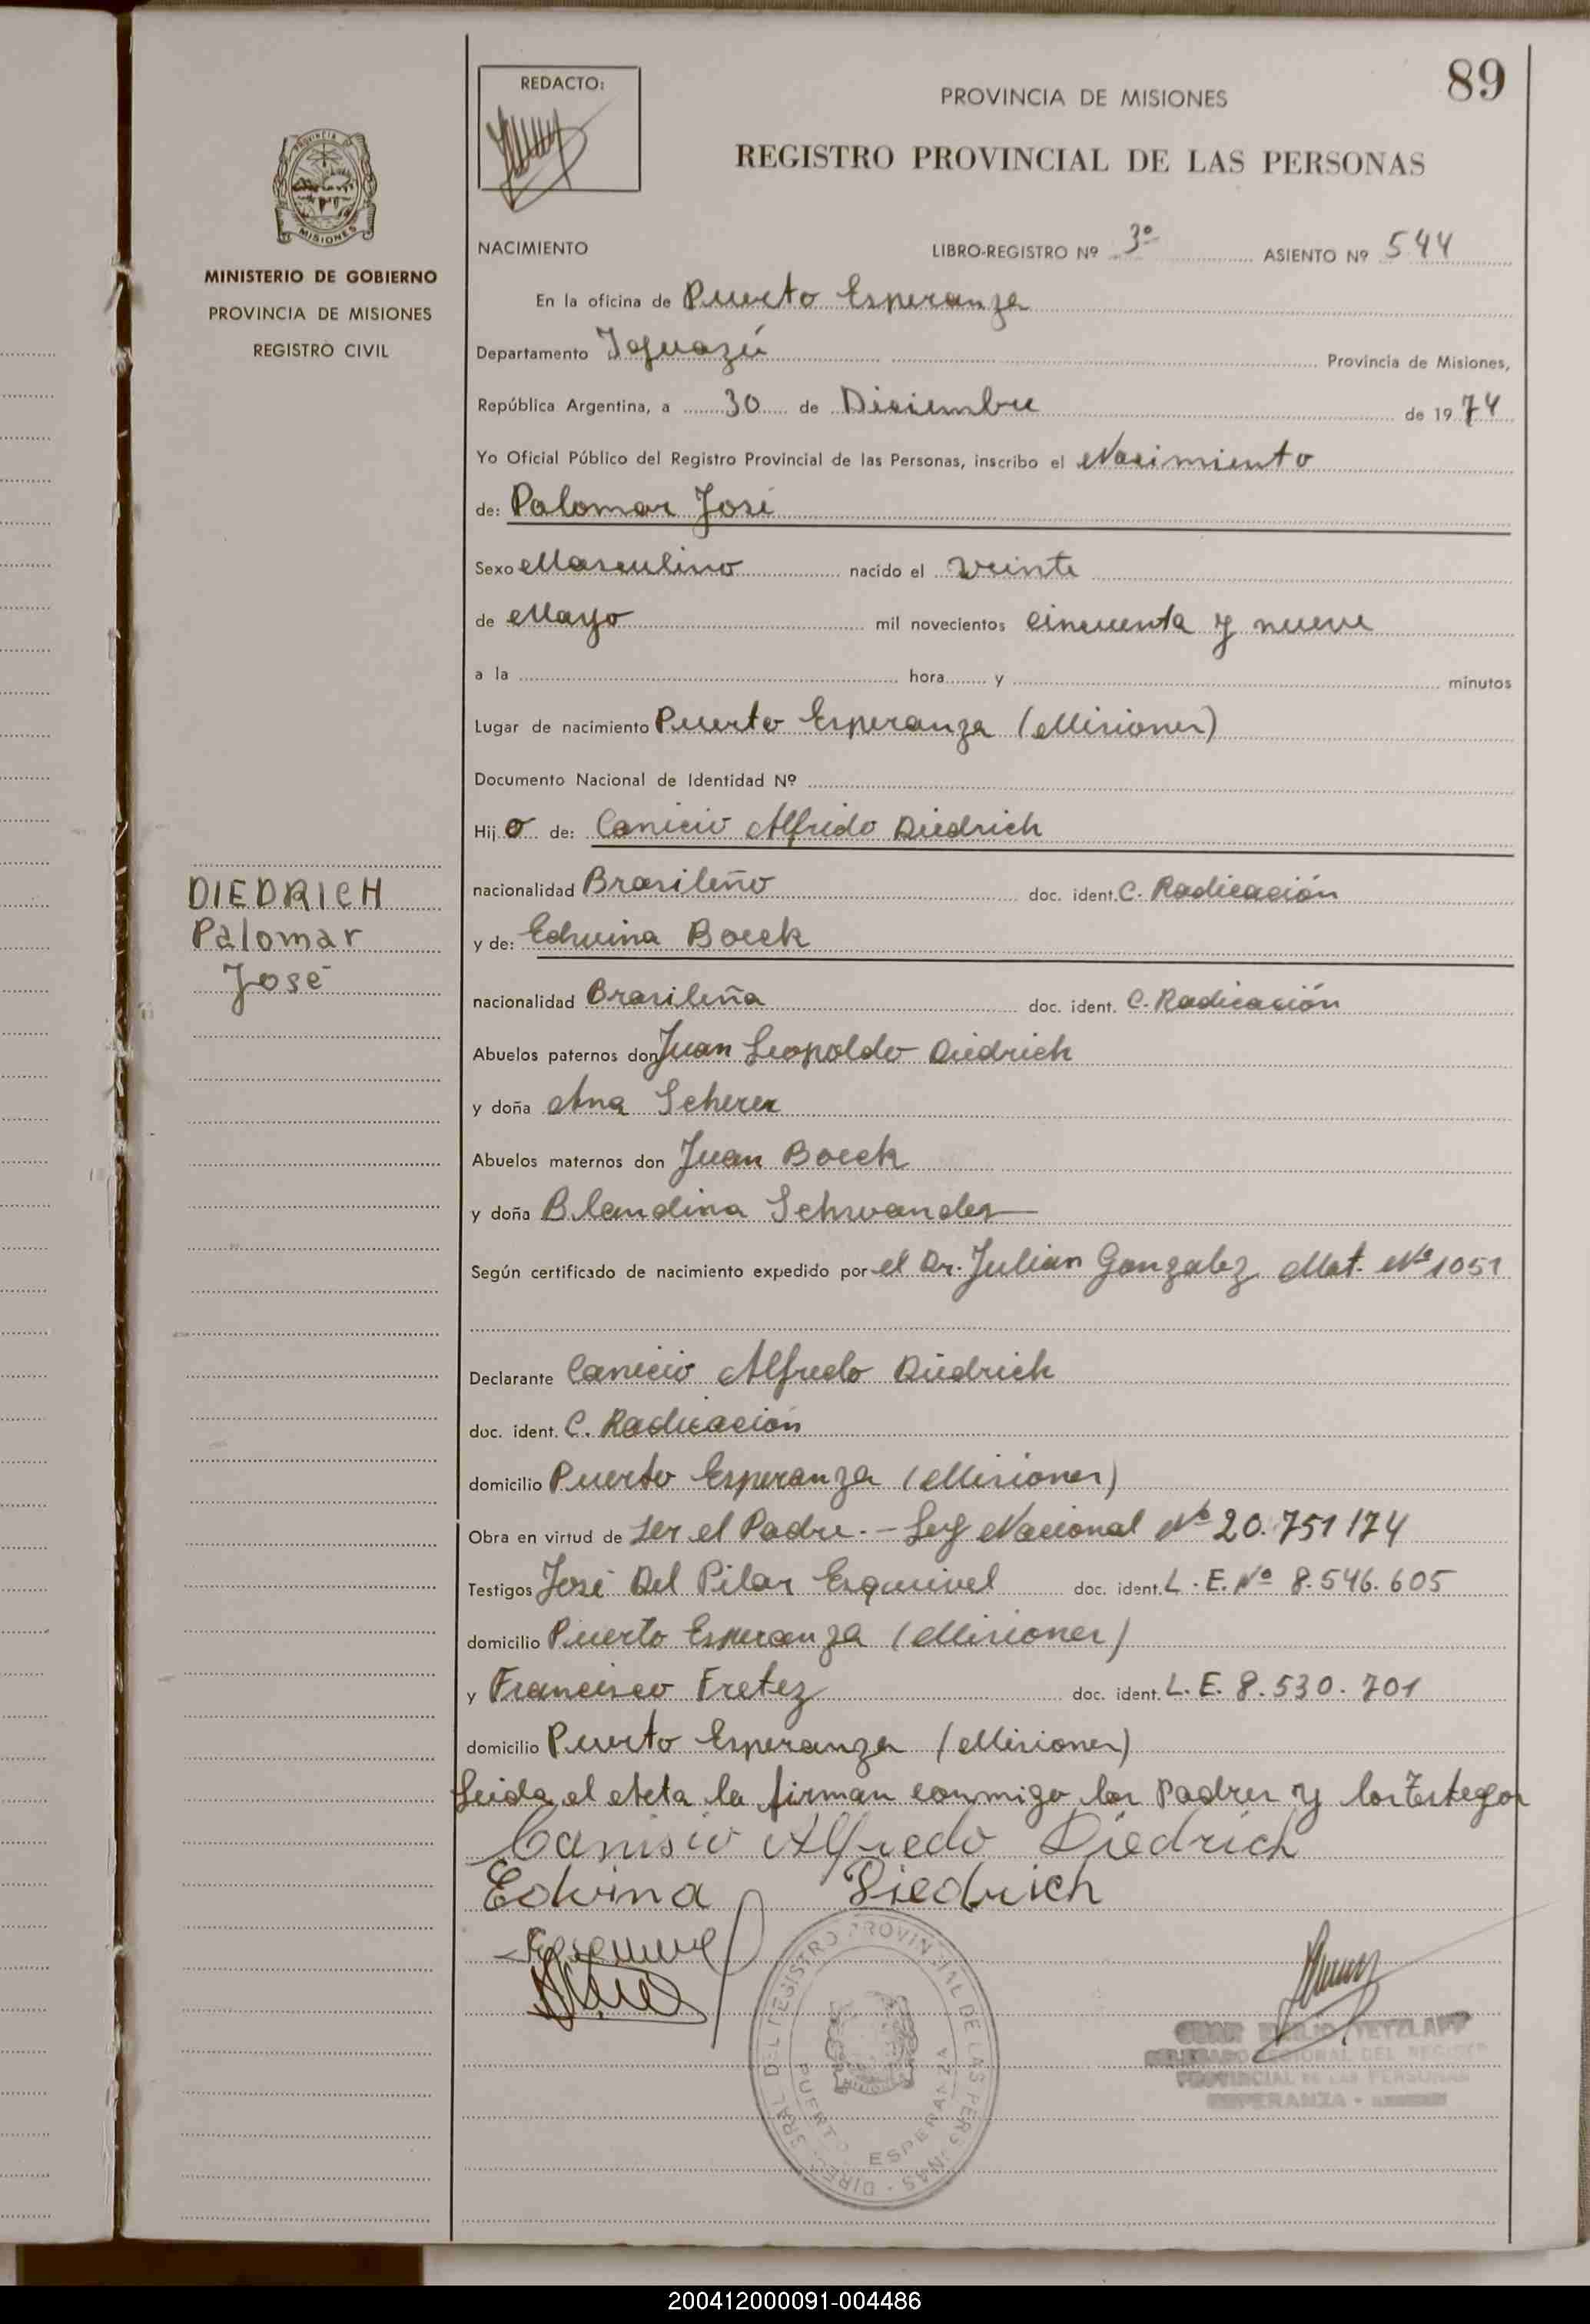 89
REDACTO:
PROVINCIA DE MISIONES
REGISTRO PROVINCIAL DE LAS PERSONAS
PROVINCIA DE
MISIONES
MINISTERIO DE GOBIERNO
PROVINCIA DE MISIONES
REGISTRO CIVIL
NACIMIENTO LIBRO-REGISTRO Nº 3º ASIENTO Nº 544
En la oficina de Puerto Esperanza
Departamento Iguazú Provincia de Misiones,
República Argentina, a 30 de Diciembre de 1974
Yo Oficial Público del Registro Provincial de las Personas, inscribo el Nacimiento
de: Palomar José
Sexo Masculino nacido el veinte
de Mayo mil novecientos cincuenta y nueve
a la hora y minutos
Lugar de nacimiento Puerto Esperanza (Misiones)
Documento Nacional de Identidad Nº
Hijo de: Canicio Alfredo Diedrich
DIEDRICH
Palomar
José
nacionalidad Brasileño doc. ident. C. Radicación
y de: Edwina Boeck
nacionalidad Brasileña doc. ident. C. Radicación
Abuelos paternos don Juan Leopoldo Diedrich
y doña Ana Scherer
Abuelos maternos don Juan Boeck
y doña Blandina Schwander
Según certificado de nacimiento expedido por el Dr. Julian Gonzalez Mat. Nº 1051
Declarante Canicio Alfredo Diedrich
doc. ident. C. Radicación
domicilio Puerto Esperanza (Misiones)
Obra en virtud de ser el Padre.- Ley Nacional Nº 20.751/74
Testigos José Del Pilar Esquivel doc. ident. L.E. Nº 8.546.605
domicilio Puerto Esperanza (Misiones)
y Francisco Fretez doc. ident. L.E. 8.530.701
domicilio Puerto Esperanza (Misiones)
Leida el Acta la firman conmigo los Padres y los Testegos
Canisio Alfredo Diedrich
Edwina Diedrich
Esquivel
DEL REGISTRO PROVINCIAL DE LAS PERSONAS
PUERTO ESPERANZA
EMILIO TETZLAFF
DELEGADO REGIONAL DEL REGISTRO
PROVINCIAL DE LAS PERSONAS
ESPERANZA -
200412000091-004486